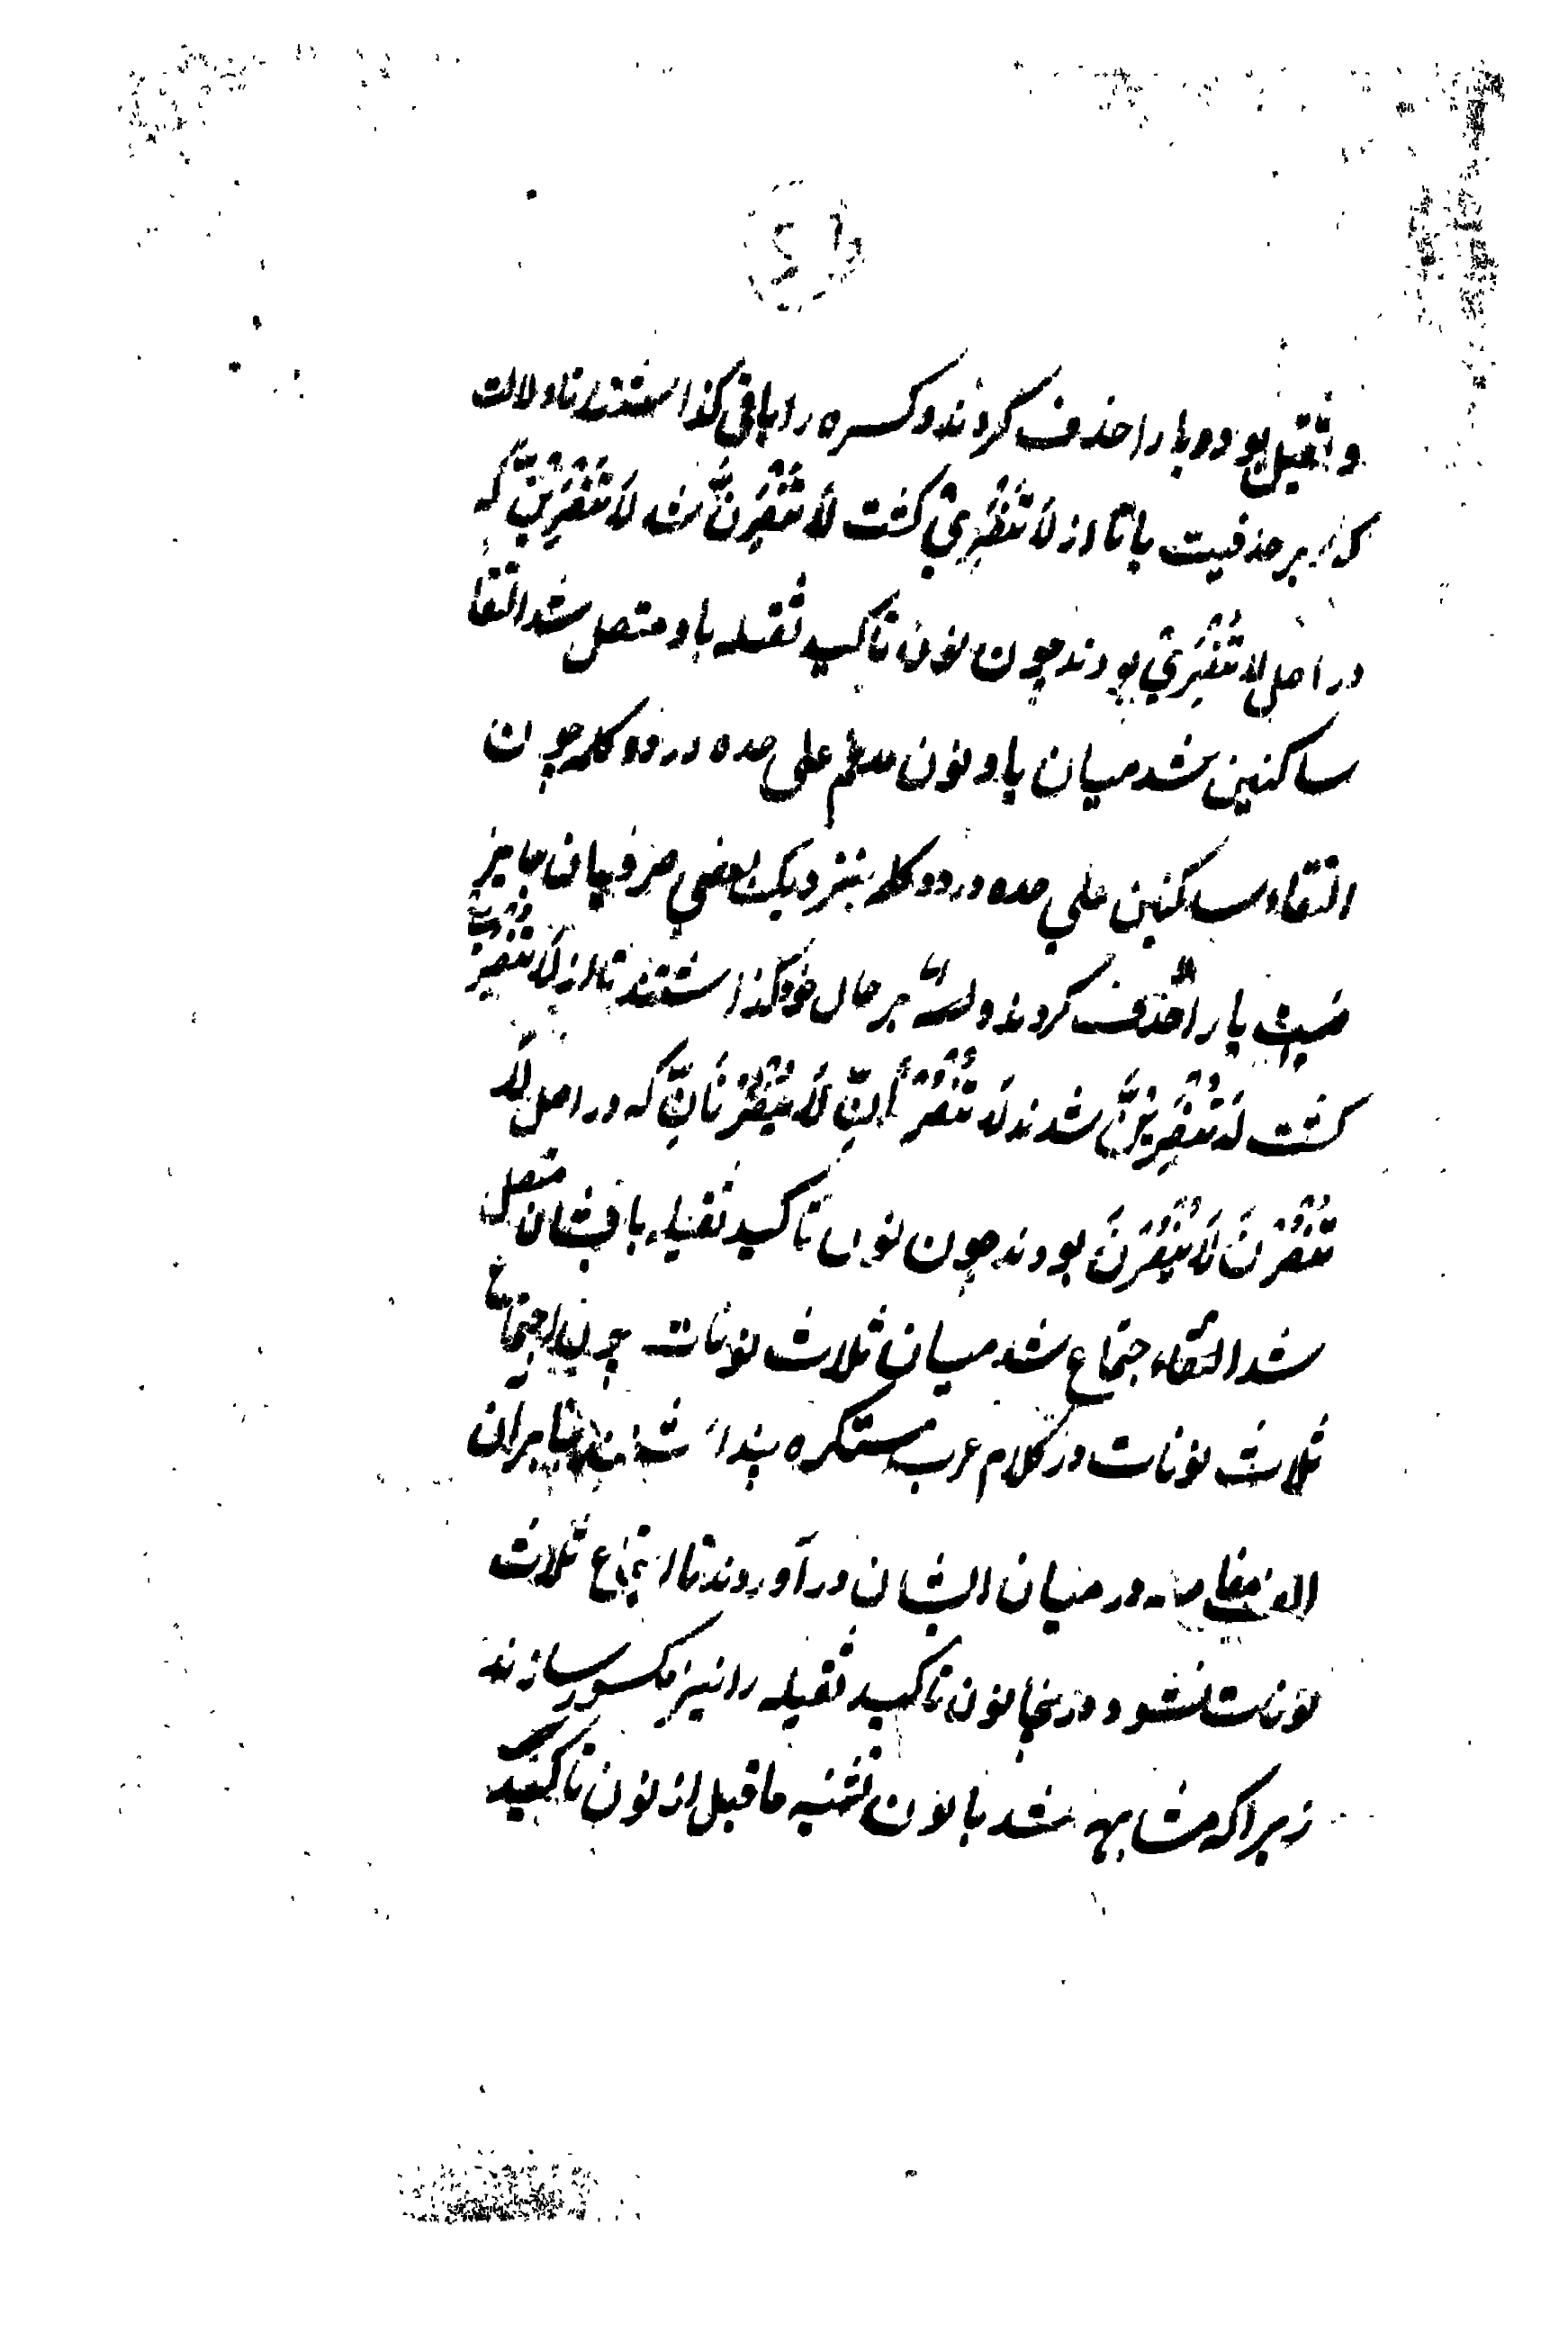 و ثقیل بود و یا را حذف کردند و کسره را باقی کذاشتند تا دلالت
کند بر حذفیت یا تا از لَا تَنْصُرِیْ کشت لَا تَنْصُرِنَّ که
در اصل لا تَنْصُرِیْ بودند چون نون تاکید ثقیله باو متصل شد التقا
ساکنین شد میان یا و نون مدغم علی حده در دو کلمه چون
التقاء ساکنین علی حده در دو کلمه بنزدیک بعضی صرفیان جایز
نیست یا را حذف کردند و بر حال خود کذاشتند تا از لَا تَنْصُرِیْ
کشت لَا تَنْصُرِنَّ شدند لَا تَنْصُرْنَانِّ لَا یَنْصُرْنَانِّ که در اصل لَا
تَنْصُرْنَ لَا یَنْصُرْنَ بودند چون نون تاکید ثقیله بایشان متصل
شد التقاء جتماع شد میان ثلاث نونات چون اجتماع
ثلاث نونات در کلام عرب مستکره پنداشتند بنابران
الف فاصله در میان ایشان در آوردند تا اجتماع ثلاث
نونات نشود و درینجا نون تاکید ثقیله را نیز مکسور سازند
زیرا که مشابهه شد با نون تثنیه ما قبل از نون تاکید